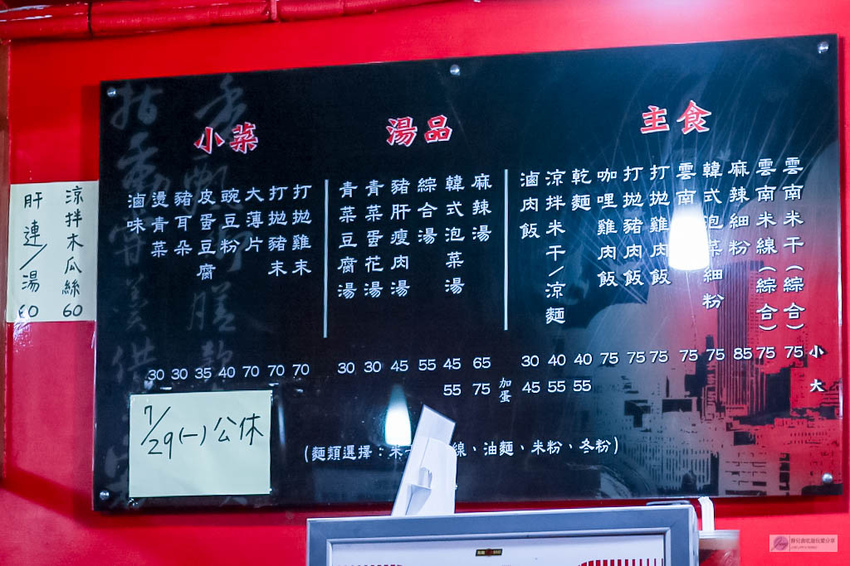 主食
雲南米干(綜合)
雲南米線(綜合)
麻辣細粉
韓式泡菜細粉
雲南
打拋雞肉飯
打拋豬肉飯
咖哩雞肉飯
乾麵
涼拌米干/涼麵
滷肉飯
湯品
麻辣湯
韓式泡菜湯
綜合湯
豬肝瘦肉湯
青菜蛋花湯
青菜豆腐湯
小菜
打拋雞末
打拋豬末
大薄片
豌豆粉
皮蛋豆腐
豬耳朵
燙青菜
滷味
30 30 35 40 70 70 70 30 30 45 55 45 65 30 40 40 75 75 75 75 75 85 75 75 小
55 75 加蛋 45 55 55 大
(麵類選擇：米 線、油麵、米粉、冬粉)
涼拌木瓜絲 60
肝連/湯 60
7/29(一)公休